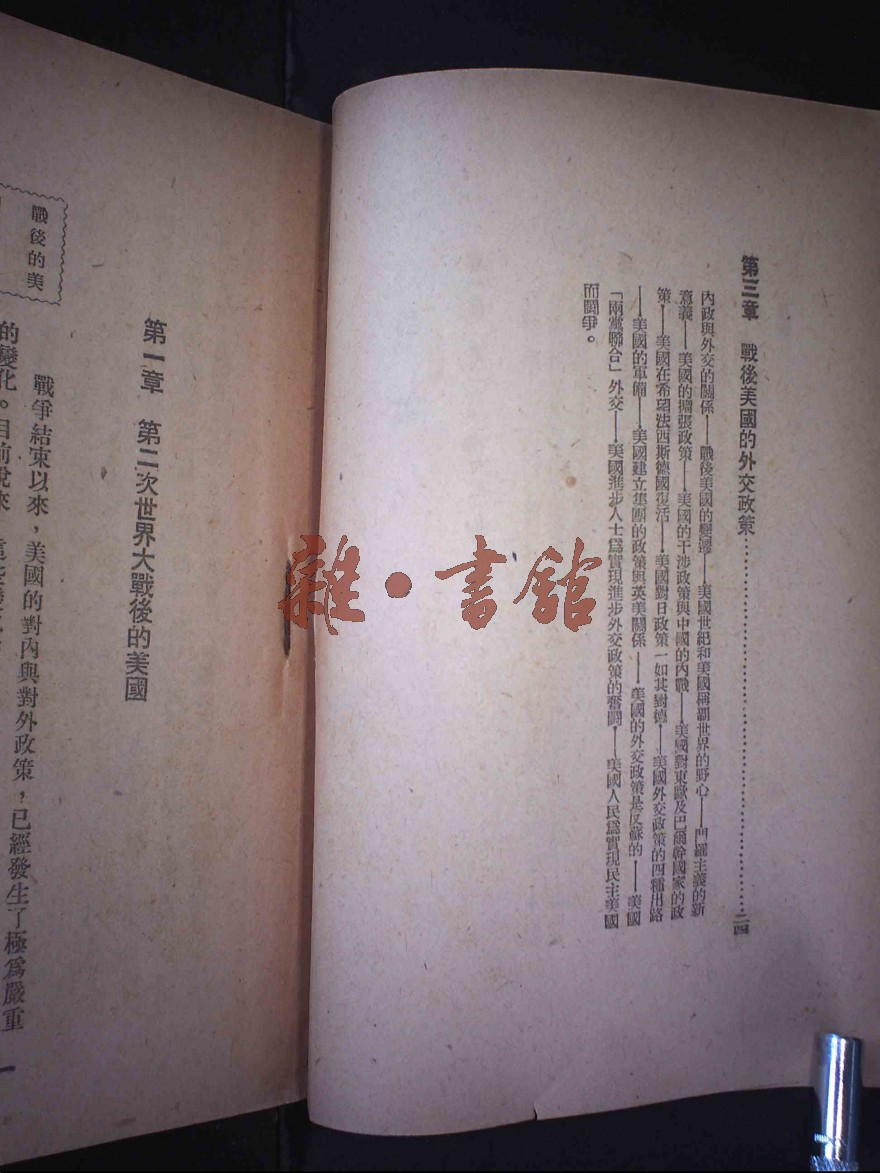 第三章　戰後美國的外交政策……………………二四
內政與外交的關係——戰後美國的變遷——美國世紀和美國稱霸世界的野心——門羅主義的新
意義——美國的擴張政策——美國的干涉政策與中國的內戰——美國對東歐及巴爾幹國家的政
策——美國在希望法西斯德國復活——美國對日政策一如其對德——美國外交政策的四種出路
——美國的軍備——美國建立集團的政策與英美關係——美國的外交政策是反蘇的——美國
「兩黨聯合」外交——美國進步人士爲實現進步外交政策的奮鬪——美國人民爲實現民主美國
而鬪爭。
雜·書館
戰後的美
第一章　第二次世界大戰後的美國
戰爭結束以來，美國的對內與對外政策，已經發生了極爲嚴重
的變化。目前說來
一